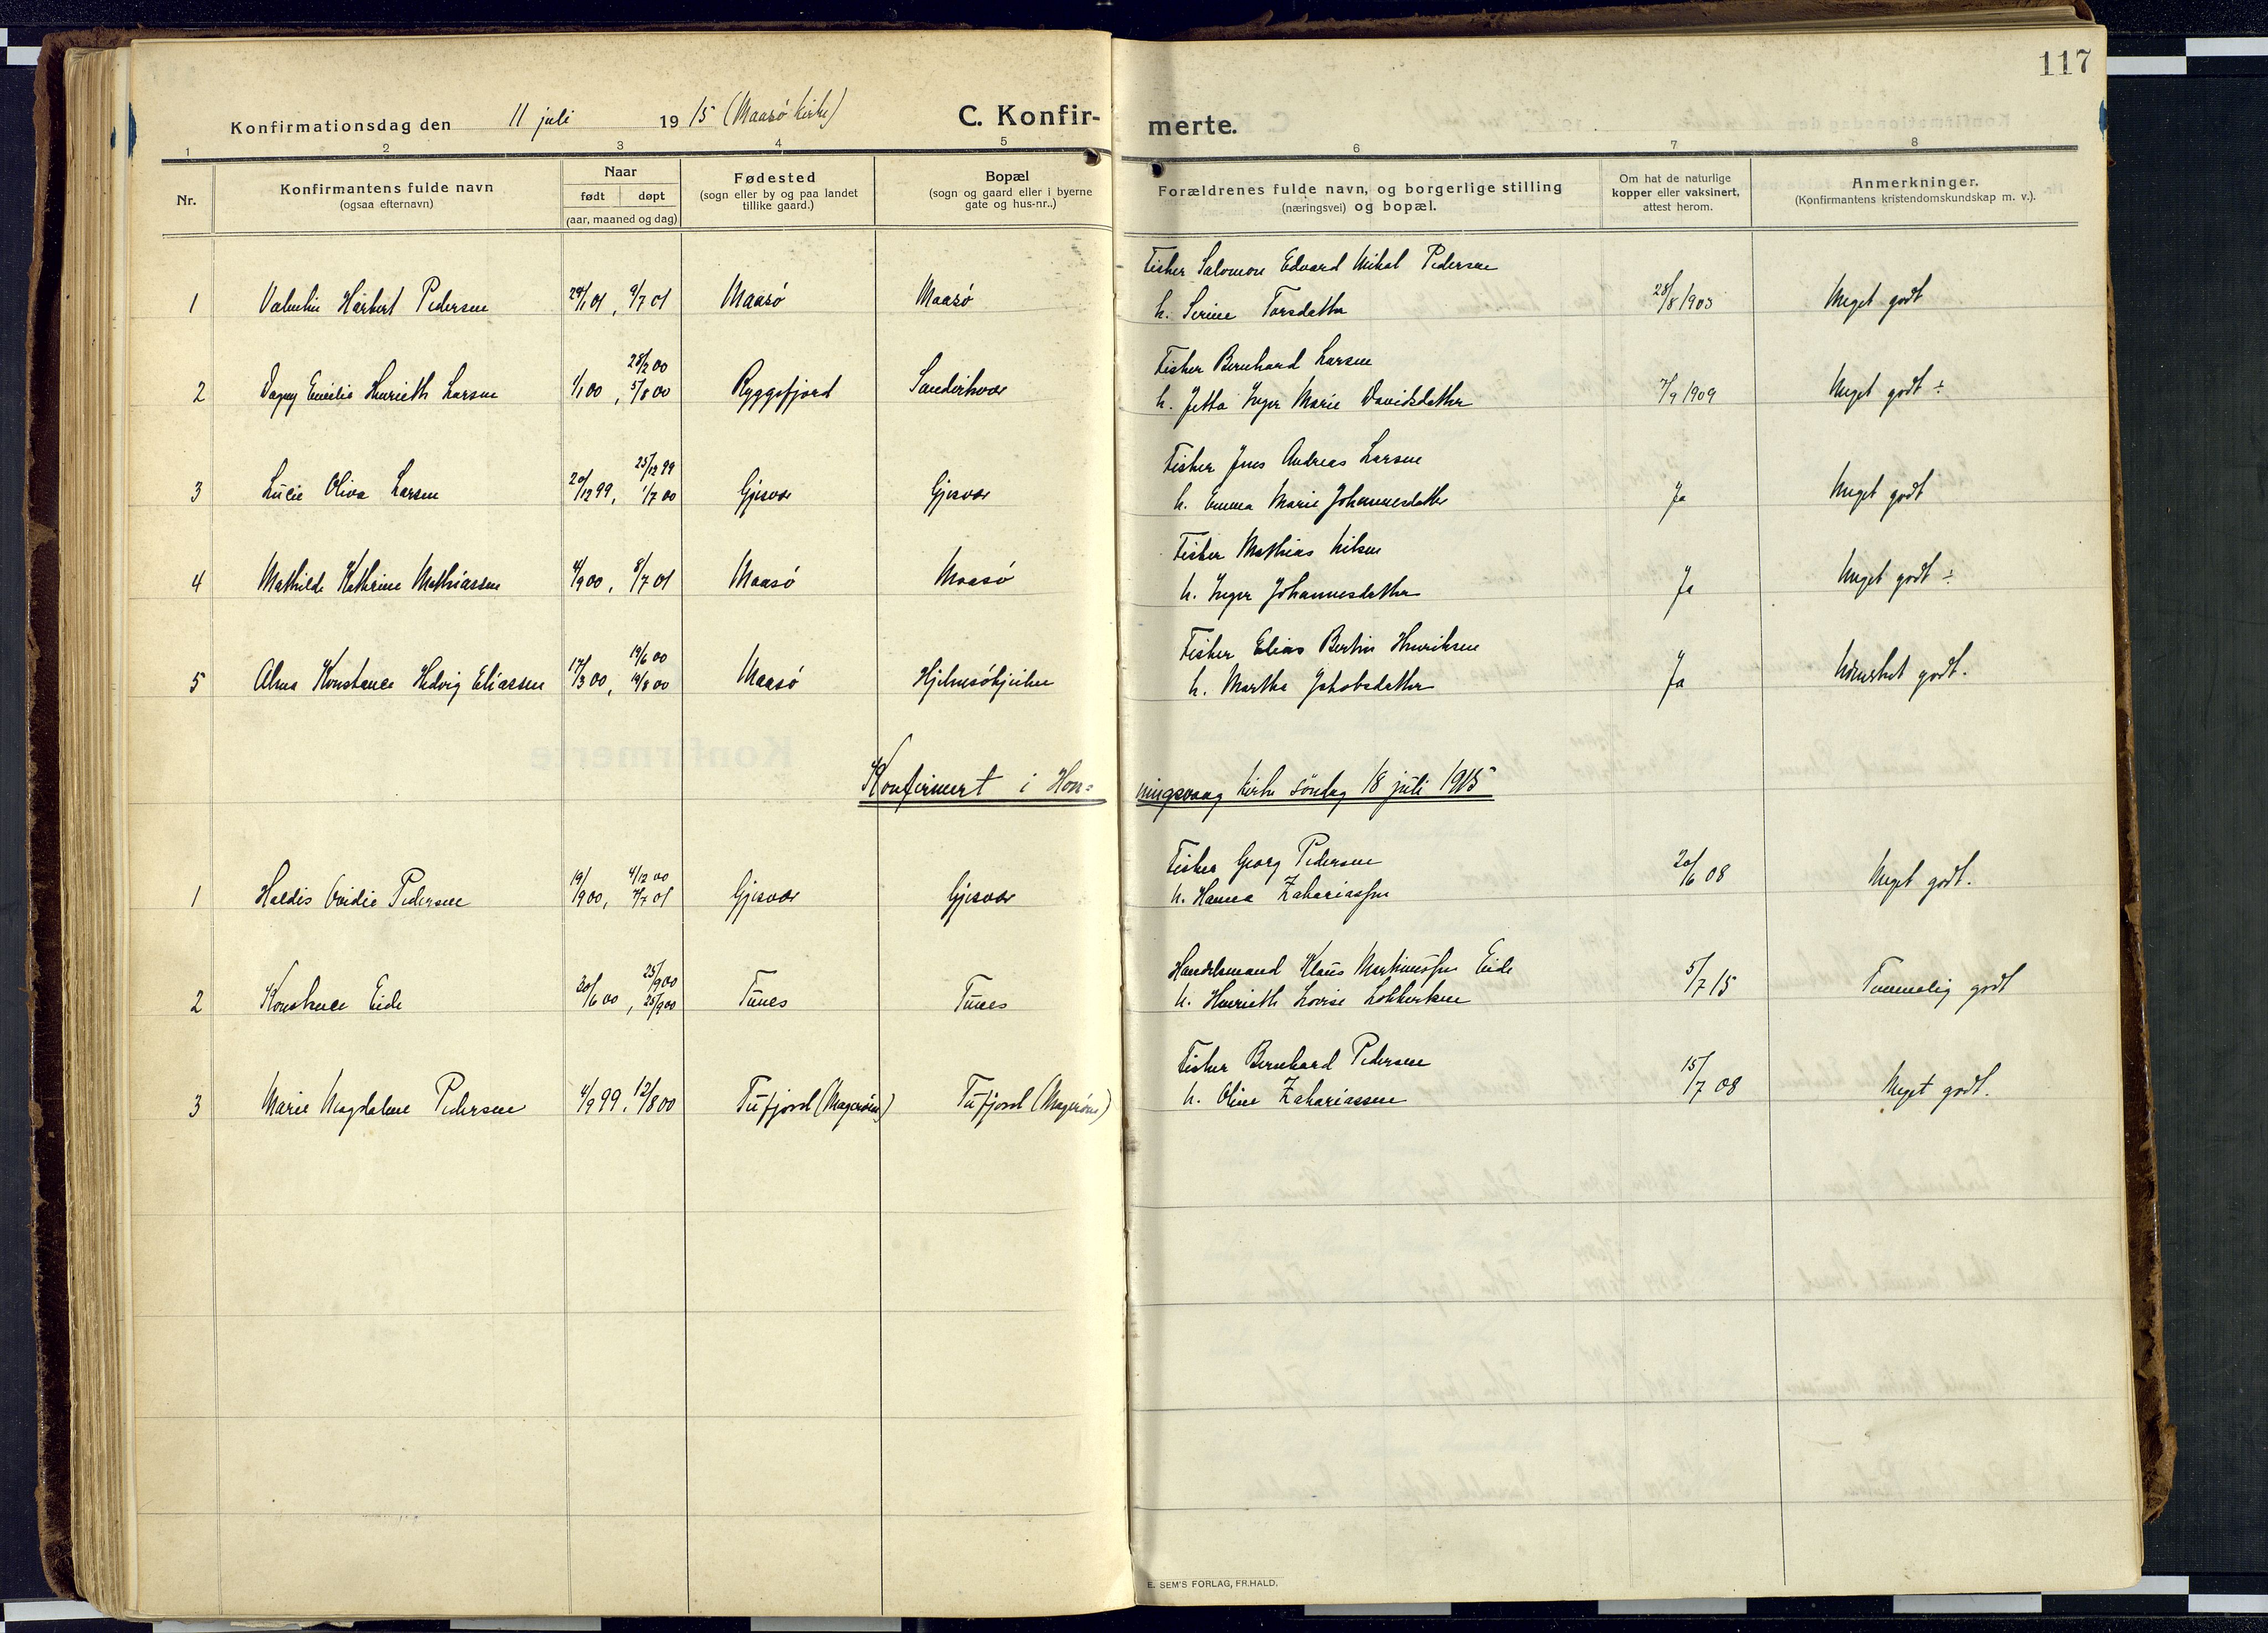 117
Konfirmationsdag den 11 juli 1915 (Maasö kirke) C. Konfirmerte.
1 2 3 4 5 6 7 8
Nr.
Konfirmantens fulde navn
(ogsaa efternavn)
Naar
født døpt
(aar, maaned og dag)
Fødested
(sogn eller by og paa landet
tillike gaard.)
Bopæl
(sogn og gaard eller i byerne
gate og hus-nr..)
Forældrenes fulde navn, og borgerlige stilling
(næringsvei) og bopæl.
Om hat de naturlige
kopper eller vaksinert,
attest herom.
Anmerkninger.
(Konfirmantens kristendomskundskap m. v.).
Fisker Salomon Edvard Mikal Pedersen
1 Valentin Harbert Pedersen 29/1 01, 9/7 01 Maasö Maasö h. Serine Torsdatter 28/8 1903 Meget godt
28/2 00 Fisker Bernhard Larsen
2 Dagny Emilie Henriette Larsen 1/1 00, 5/8 00 Ryggefjord h. Jetta Inger Marie Davidsdatter 7/9 1909 Meget godt ÷
25/12 99 Fisker Jens Andreas Larsen
3 Lucie Oliva Larsen 20/12 99, 1/7 00 Gjesvær Gjesvær h. Emma Marie Johannesdatter Ja Meget godt
Fisker Mathias Nilsen
4 Mathilde Kathrine Mathiassen 4/9 00, 8/7 01 Maasö Maasö h. Inger Johannesdatter Ja Meget godt ÷
19/6 00 Fisker Elias Bertin Henriksen
5 Alma Konstance Hedvig Eliassen 17/3 00, 19/8 00 Maasö h. Martha Jakobsdatter Ja Udmerket godt.
Konfirmert i Honningsvaag kirke söndag 18 juli 1915
4/12 00 Fisker Georg Pedersen
1 Haldis Ovidie Pedersen 19/9 00, 7/7 01 Gjesvær Gjesvær h. Hanna Zakariassen 20/6 08 Meget godt.
25/9 00 Handelsmand Klaus Martinussen Eide
2 Konstance Eide 20/6 00, 25/9 00 Tunes Tunes h. Henriette Lovise 5/7 15 Temmelig godt
Fisker Bernhard Pedersen
3 Marie Magdalene Pedersen 4/9 99, 12/8 00 Tufjord (Magerøen) Tufjord (Magerøen) h. Oline Zakariassen 15/7 08 Meget godt.
E. SEM'S FORLAG, FR.HALD.